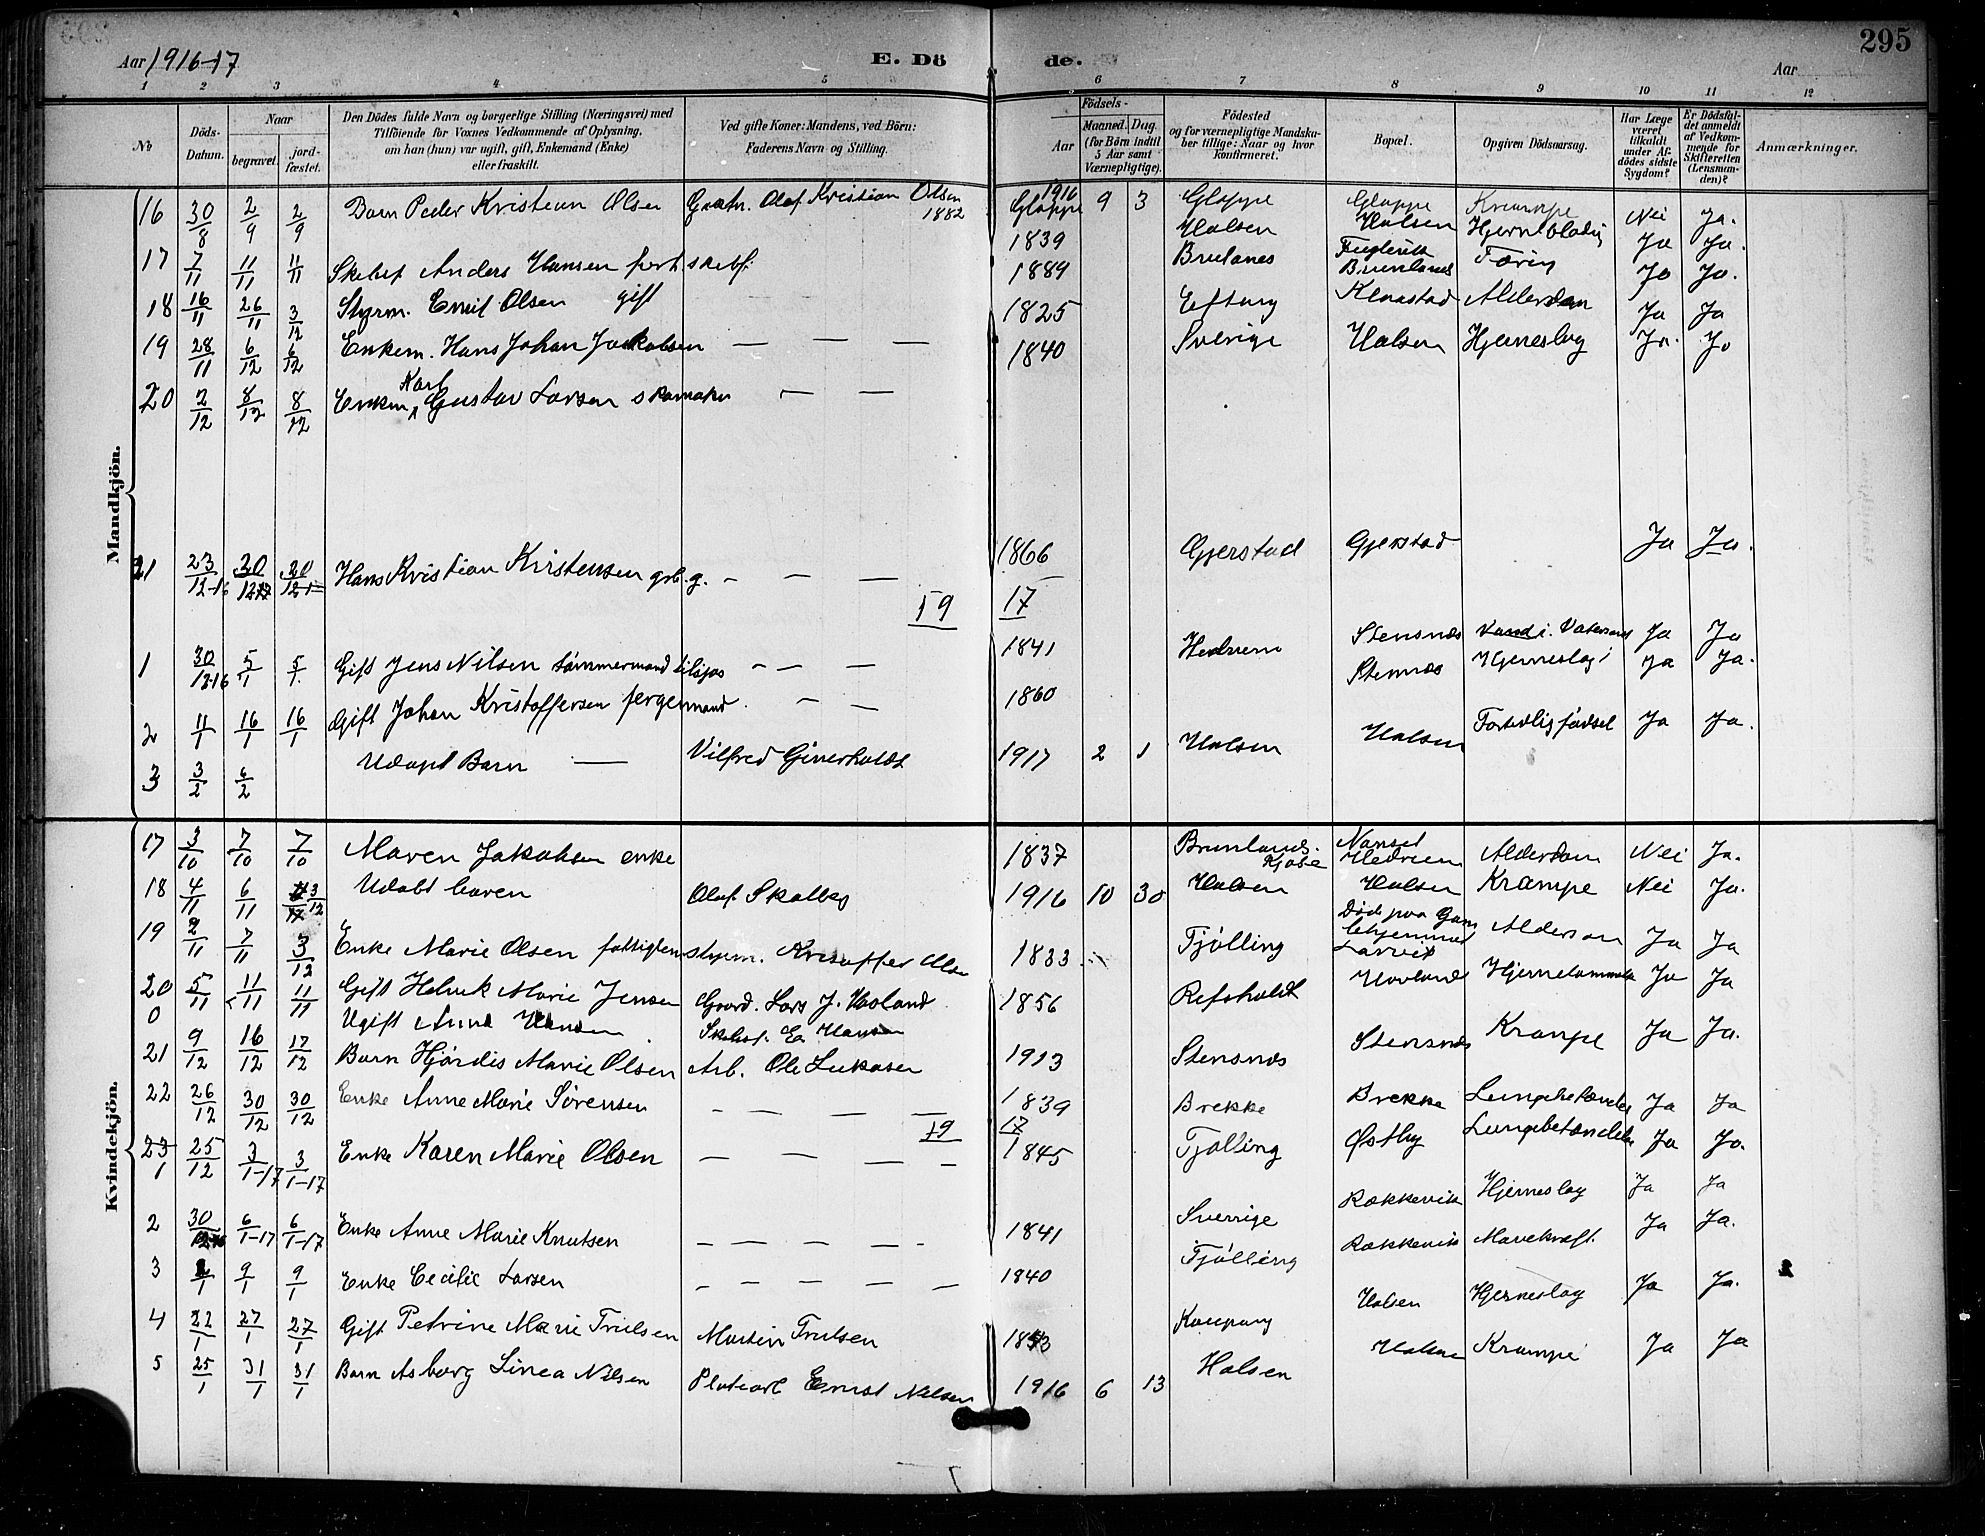 295
Aar 1916-17
E. Dö
de.
Aar
1 2 3 4 5 6 7 8 9 10 11 12
No
Döds-Datum.
Naar
begravet.
jord-fæstet.
Den Dödes fulde Navn og borgerlige Stilling (Næringsvei) med
Tilföiende for Voxnes Vedkommende af Oplysning,
om han (hun) var ugift, gift, Enkemand (Enke)
eller fraskilt.
Ved gifte Koner: Mandens, ved Börn:
Faderens Navn og Stilling.
Födsels-
Aar
Maaned. Dag.
(for Börn indtil
5 Aar samt
Værnepligtige).
Födested
og for værnepligtige Mandska-
ber tillige: Naar og hvor
konfirmeret.
Bopæl.
Opgiven Dödsaarsag.
Har Læge
været
tilkaldt
under Af-
dödes sidste
Sygdom?
Er Dödsfal-
det anmeldt
af Vedkom-
mende for
Skifteretten
(Lensman-
den)?
Anmærkninger.
Mandkjön.
16 30/8 2/9 2/9 Barn Peder Kristian Olsen Olaf Kristian Olsen 1882 1916 9 3 Gloppe Gloppe Krampe Nei Ja.
17 7/11 11/11 11/11 Anders Hansen 1839 Halsen Halsen Ja Ja.
18 16/11 26/11 3/12 Styrm. Emil Olsen gift 1889 Brunlanes Ja Ja.
19 28/11 6/12 6/12 Enkem. Hans Johan Jakobsen — — — 1825 Eftang Klaastad Alderdom Ja Ja
20 2/12 8/12 8/12 Enkem Karl Gustav Larsen skomaker — — 1840 Sverige Halsen Hjerneslag Ja. Ja
21 23/12-16 30/12 30/12 Hans Kristian Kristensen g. — — — 1866 Gjerstad Gjerstad Ja Ja.
19 17
1 30/12-16 5/1 5/1 Gift Jens Nilsen tømmermand tilsjøs — — — 1841 Hedrum Stensnæs Ja Ja
2 11/1 16/1 16/1 Gift Johan Kristoffersen fergemand. — — 1860 Stensnæs Hjerneslag Ja Ja.
3 3/2 6/2 Udøpt Barn — Vilfred 1917 2 1 Halsen Halsen Fortidlig fødsel Ja Ja.
Kvindekjön.
17 3/10 7/10 7/10 Maren Jakobsen enke 1837 Brunlanes. Kjose Nanset Hedrum Alderdom Nei Ja.
18 4/11 6/11 3/12 Udøbt Olaf 1916 10 30 Halsen Halsen Krampe Nei Ja.
19 2/11 7/11 3/12 Enke Marie Olsen styrm. Kristoffer Olsen 1833 Tjølling Død paa Gamlehjemmet Larvik Alderdom Ja Ja
20 5/11 11/11 11/11 Gift Marie Jensen Gaard. Lars J. Hovland 1856 Refsholdt Hovland Ja Ja
0 Ugift Anna Hansen E. Hansen
21 9/12 16/12 17/12 Barn Hjørdis Marie Olsen Arb. Ole Lukasen 1913 Stensnæs Stensnæs Krampe Ja Ja.
22 26/12 30/12 30/12 Enke Anne Marie Sørensen — — — — 1839 Brekke Brekke Lungebetændelse Ja Ja
19 17
23 1 25/12 3/1-17 3/1-17 Enke Karen Marie Olsen — — — — 1845 Tjølling Østby Lungebetændelse Ja Ja.
2 30/12 6/1-17 6/1-17 Enke Anne Marie Knutsen — — — — — 1841 Sverige Rækkevik Hjerneslag Ja Ja
3 1 9/1 9/1 Enke Cecilie Larsen — — — — — 1840 Tjølling Rækkevik Mavekræft. Ja Ja.
4 22/1 27/1 27/1 Gift Petrine Marie Trulsen Martin Trulsen Kaupang Halsen Hjerneslag Ja Ja.
5 25/1 31/1 31/1 Barn Asborg Linea Nilsen Ernst Nilsen 1916 6 13 Halsen Halsen Krampe Ja Ja